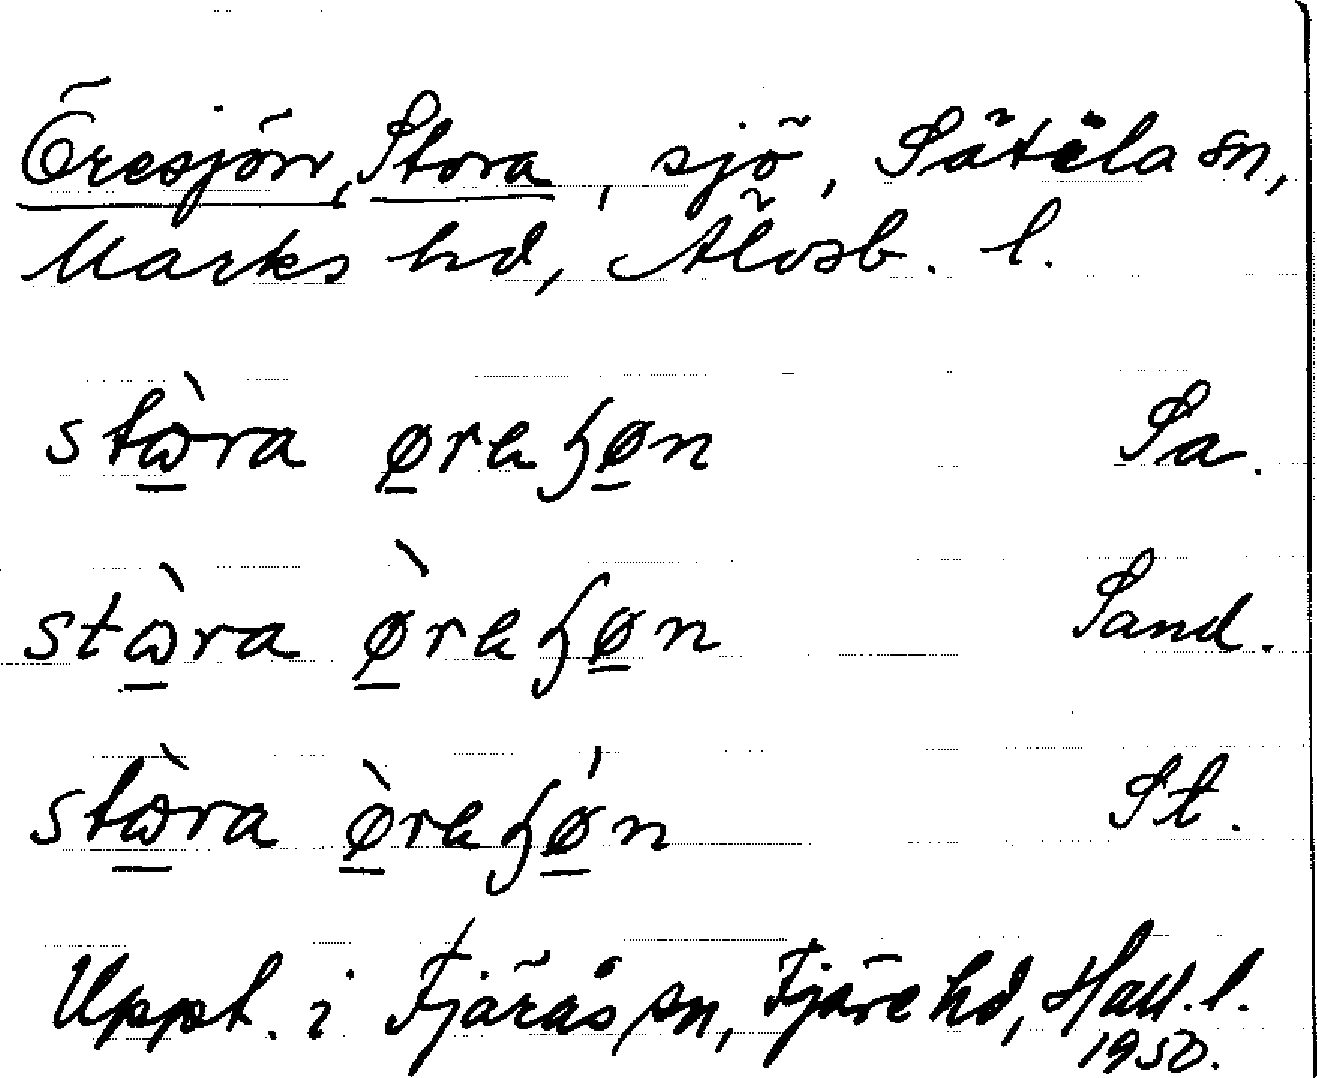 Öresjön, Stora, sjö, Sätila sn,
Marks hd, Älvsb. l.
stὼ̱ra ø̱reɧø̱n Sa.
stὼ̱ra ø̱̀reɧø̱n Sand.
stὼ̱ra ø̱̀reɧǿ̱n St.
Uppt. i Fjärås sn, Fjäre hd, Hall. l.
1950.